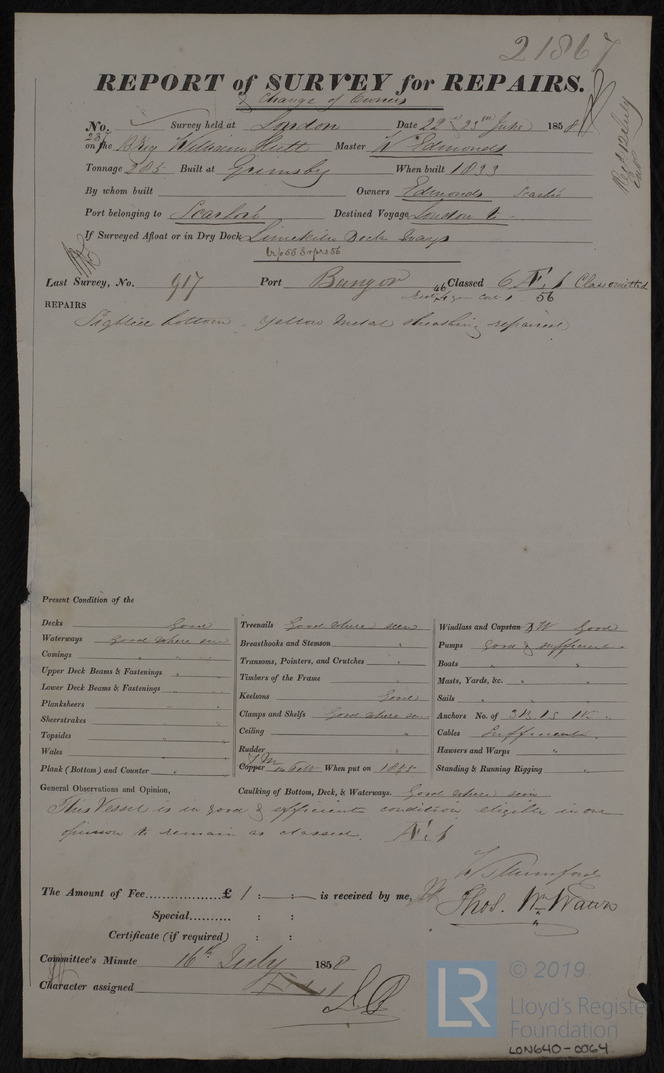 21867
REPORT of SURVEY for REPAIRS.
& Change of Owners
No. Survey held at London Date 22nd 23rd June 1858
on the Brig William Hutt Master W Edmonds
Tonnage 205 Built at Grimsby When built 1833
By whom built Owners Edmonds
Port belonging to Destined Voyage London
If Surveyed Afloat or in Dry Dock Limekiln Dock Ways
Last Survey, No. 917 Port Bangor Classed 6 Æ 1 Class omitted
56
REPAIRS
Sighted bottom. Yellow Metal sheathing repaired
Present Condition of the
Decks Good
Waterways Good where seen
Comings "
Upper Deck Beams & Fastenings "
Lower Deck Beams & Fastenings "
Planksheers "
Sheerstrakes "
Topsides "
Wales "
Plank (Bottom) and Counter "
Treenails Good where seen
Breasthooks and Stemson "
Transoms, Pointers, and Crutches "
Timbers of the Frame "
Keelsons Good
Clamps and Shelfs Good where seen
Ceiling "
Rudder "
Copper Y M on Felt When put on 1855
Windlass and Capstan Good
Pumps Good & sufficient
Boats "
Masts, Yards, &c. "
Sails "
Anchors No. of 3B. 1S 1K.
Cables Sufficient
Hawsers and Warps "
Standing & Running Rigging "
General Observations and Opinion, Caulking of Bottom, Deck, & Waterways. Good where seen
This Vessel is in good & efficient condition eligible in our
opinion to remain as classed. Æ 1
W Mumford
The Amount of Fee £ 1 : — : — is received by me, Thos. Wm Wawn
Special : :
Certificate (if required) : :
Committee's Minute 16th July 1858
Character assigned
© 2019
LR Lloyd's Register
Foundation
LON640-0064